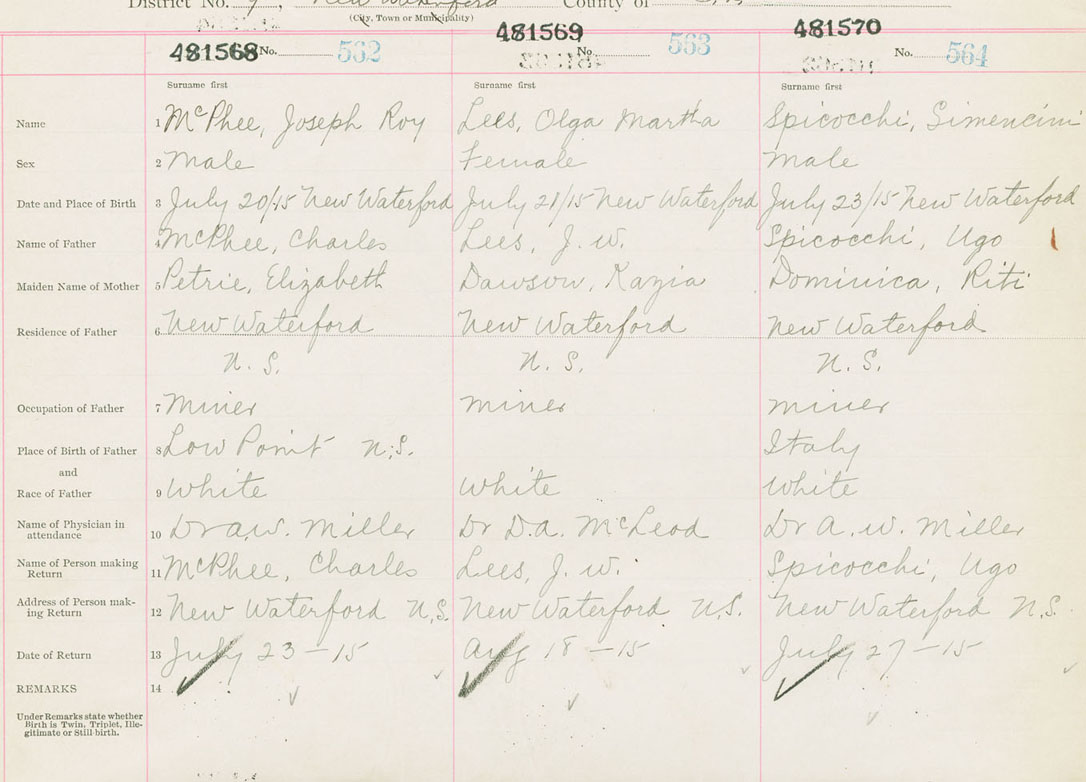 District No. 9, New Waterford County of C.B.
(City, Town or Municipality)
481568 No. 562 481569 No. 563 481570 No. 564
Surname first Surname first Surname first
Name 1 McPhee, Joseph Roy Lees, Olga Martha Spicocchi, Simencini
Sex 2 Male Female Male
Date and Place of Birth 3 July 20/15 New Waterford July 21/15 New Waterford July 23/15 New Waterford
Name of Father 4 McPhee, Charles Lees, J. W. Spicocchi, Ugo
Maiden Name of Mother 5 Petrie, Elizabeth Dawson, Kazia Dominica, Riti
Residence of Father 6 New Waterford New Waterford New Waterford
N. S. N. S. N. S.
Occupation of Father 7 Miner Miner Miner
Place of Birth of Father 8 Low Point N.S. Italy
and
Race of Father 9 White White White
Name of Physician in
attendance 10 Dr A.W. Miller Dr D.A. McLeod Dr A. W. Miller
Name of Person making
Return 11 McPhee, Charles Lees, J. W. Spicocchi, Ugo
Address of Person mak-
ing Return 12 New Waterford N.S. New Waterford N.S. New Waterford N.S.
Date of Return 13 July 23 - 15 Aug 18 - 15 July 27 - 15
REMARKS 14
Under Remarks state whether
Birth is Twin, Triplet, Ille-
gitimate or Still-birth.